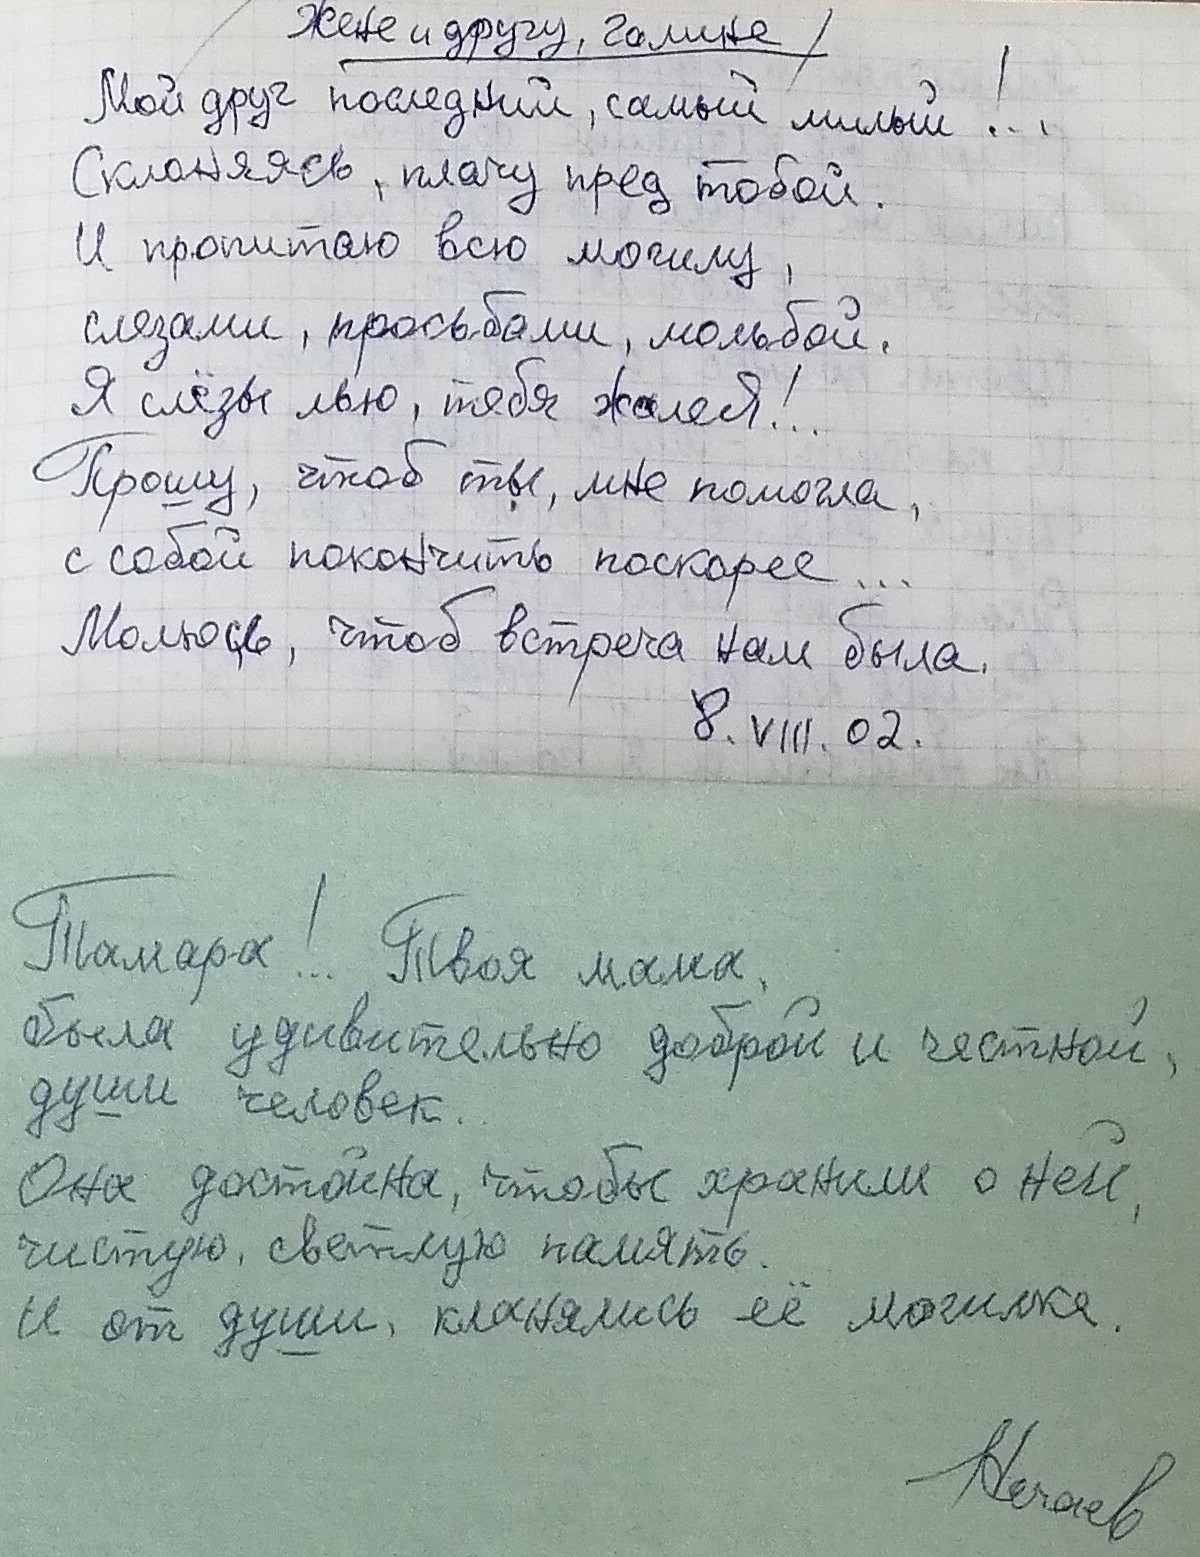 Жене и другу, Галине
Мой друг последний, самый милый!...
Склоняясь, плачу пред тобой.
И пропитаю всю могилу,
слезами, просьбами, мольбой.
Я слёзы лью, тебя жалея!...
Прошу, чтоб ты, мне помогла,
с собой покончить поскорее...
Молюсь, чтоб встреча нам была.
8.VIII.02.
Тамара!... Твоя мама,
была удивительно доброй и честной,
души человек..
Она достойна, чтобы хранили о ней,
чистую, светлую память.
И от души, кланялись её могилке.
Нечаев